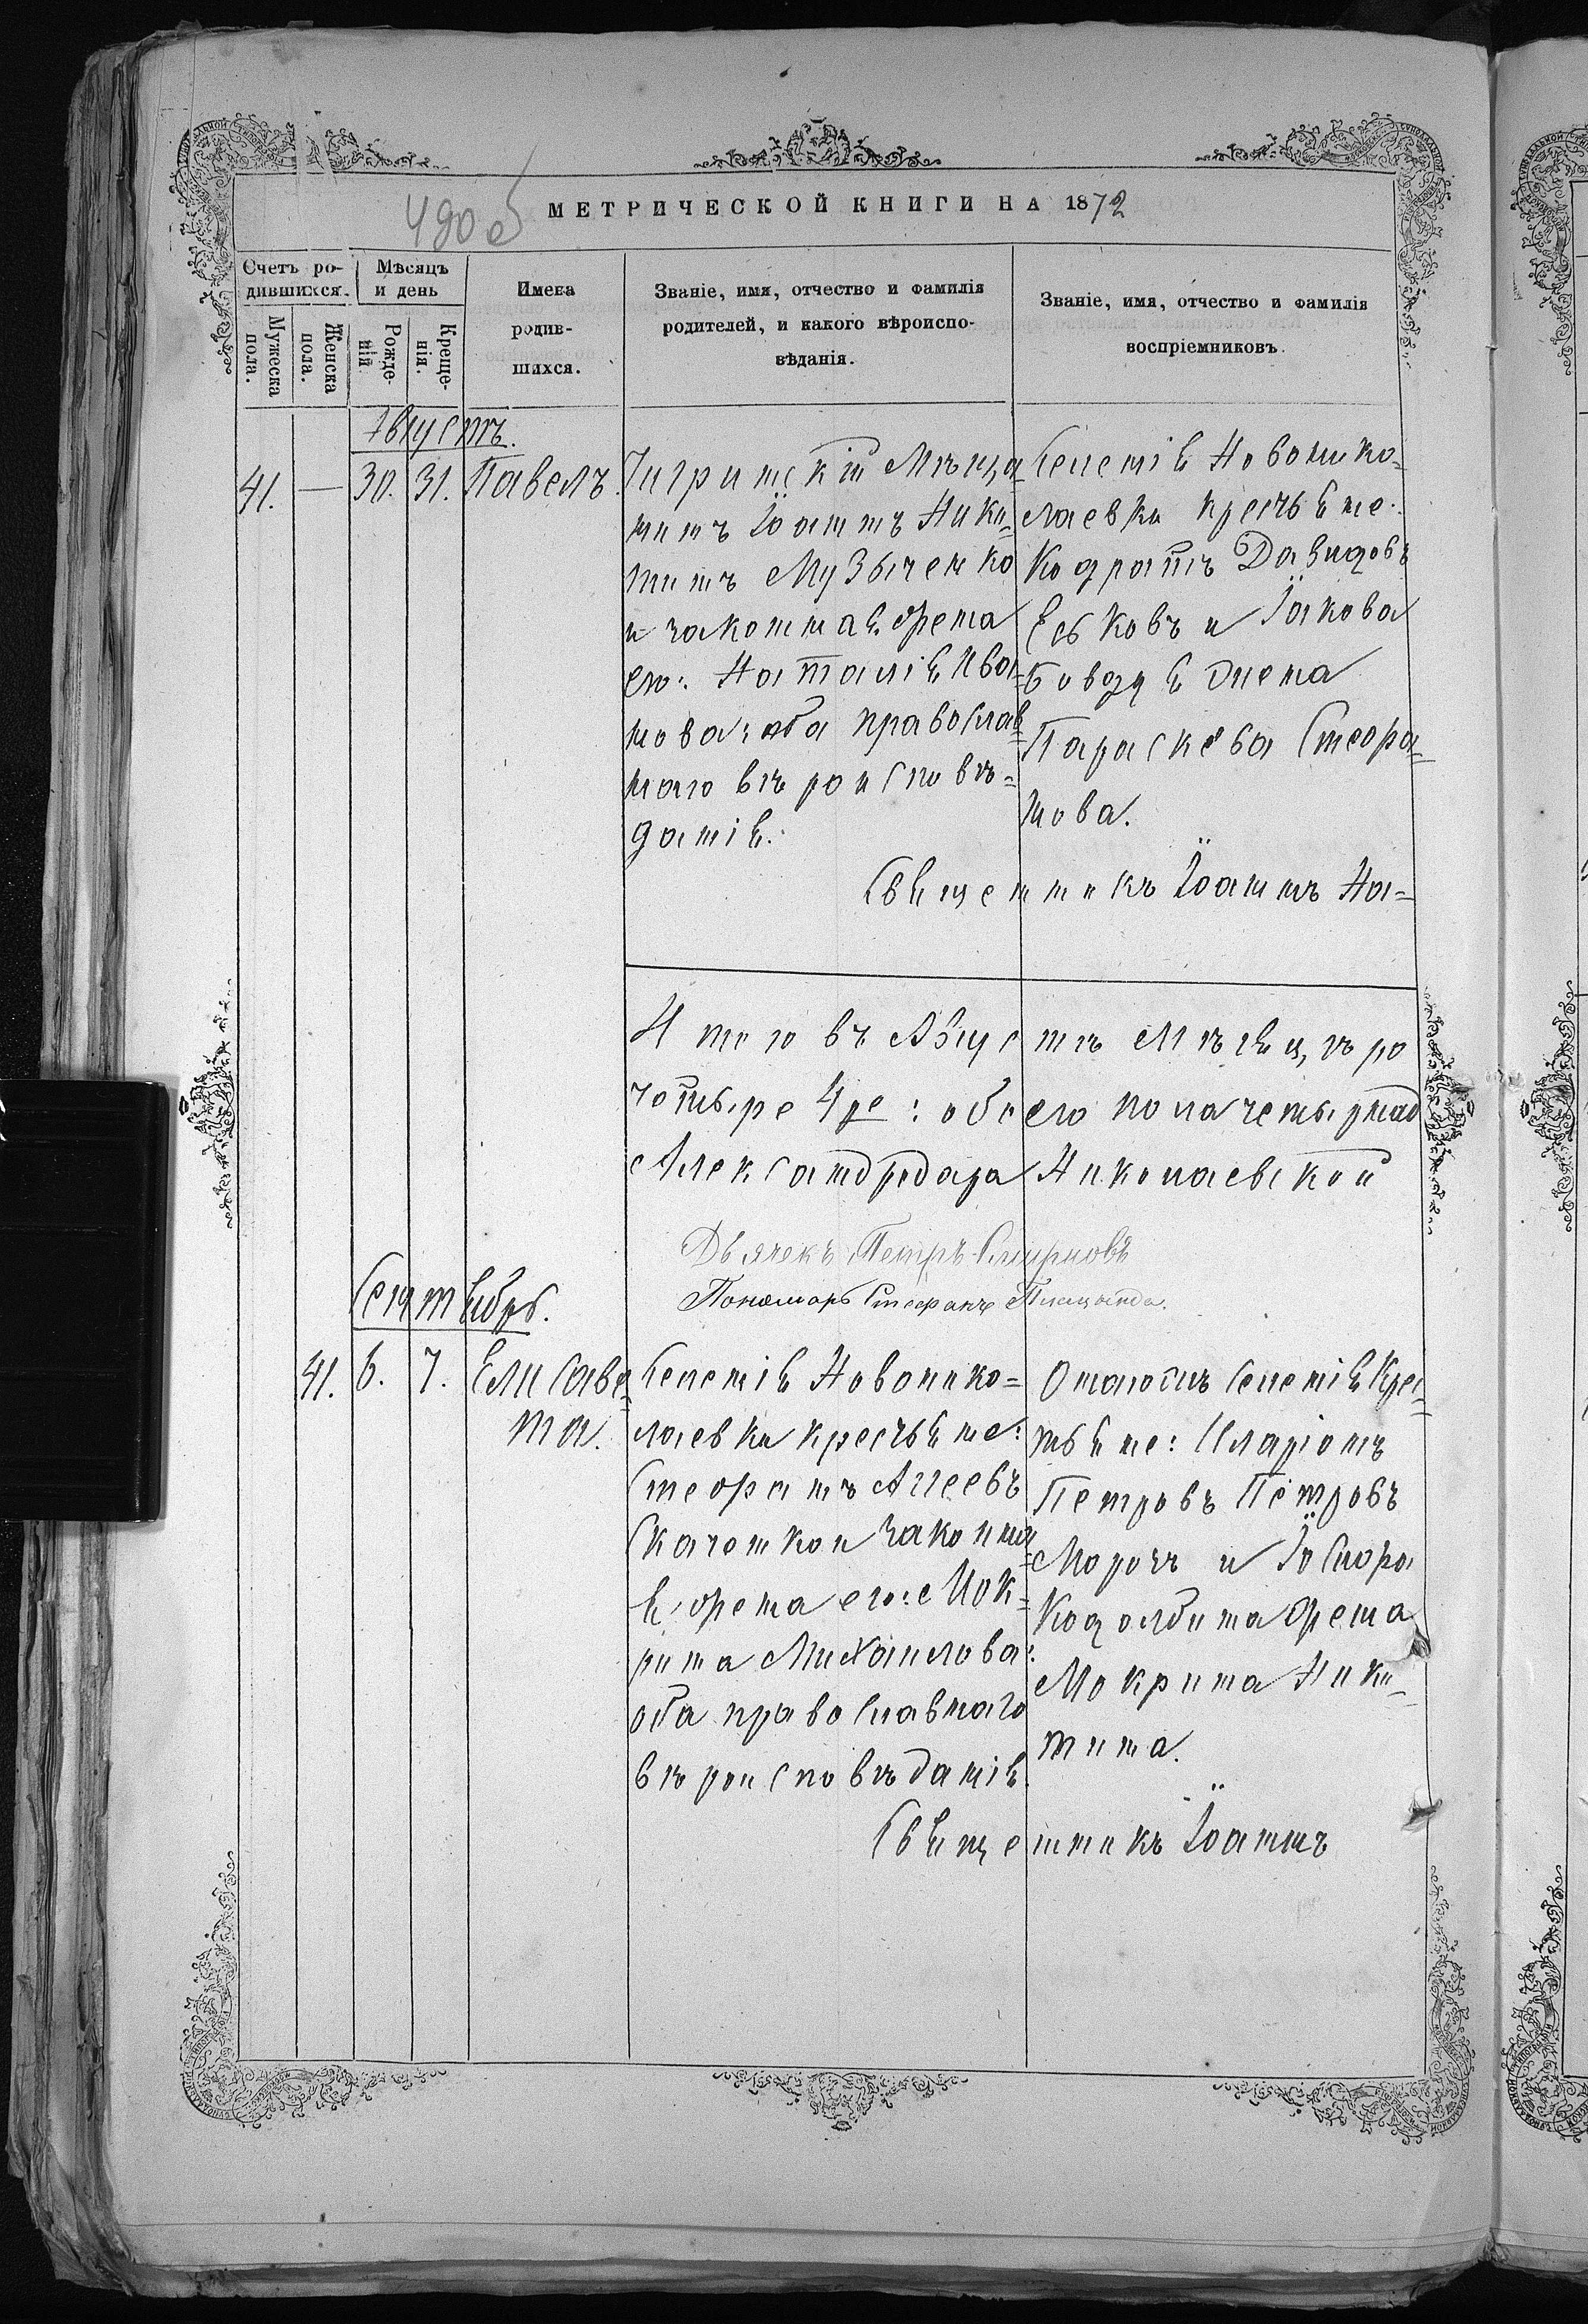 490 об
МЕТРИЧЕСКОЙ КНИГИ НА 1872
Счетъ ро-
дившихся.
Мужеска
пола.
Женска
пола.
Мѣсяцъ
и день
Рожде-
нія
Креще-
нія.
Имена
родив-
шихся.
Званіе, имя, отчество и фамилія
родителей, и какого вѣроиспо-
вѣданія.
Званіе, имя, отчество и фамилія
воспріемниковъ.
Августъ.
41. — 30. 31. Павелъ.
Чигринскій Мѣща-
нинъ Іоаннъ Ники-
тинъ Музыченко
и законная жена
его: Наталія Ива-
нова: оба православ-
наго вѣроисповѣ-
данія.
Селенія Новонико-
лаевки кресьяне:
Кодратъ Давидовъ
и Іакова
жена
Параскева Стефа-
нова.
Священникъ Іоаннъ На-
Итого въ Августѣ Мѣсяцѣ ро
четыре 4ре: обоего пола четырнад
Александродара Николаевской
Дьячекъ Петръ Смирновъ
Пономарь Стефанъ
Сентябрь.
41. 6. 7. Елисаве-
та.
Селенія Новонико-
лаевки кресьяне:
Стефанъ Агеевъ
и законна-
я жена его: Мок-
рина Михаилова:
оба православнаго
вѣроисповѣданія.
Селенія Крес-
тьяне: Иларіонъ
Петровъ Петровъ
Морозъ и
жена
Мокрина Ники-
тина.
Священникъ Іоаннъ